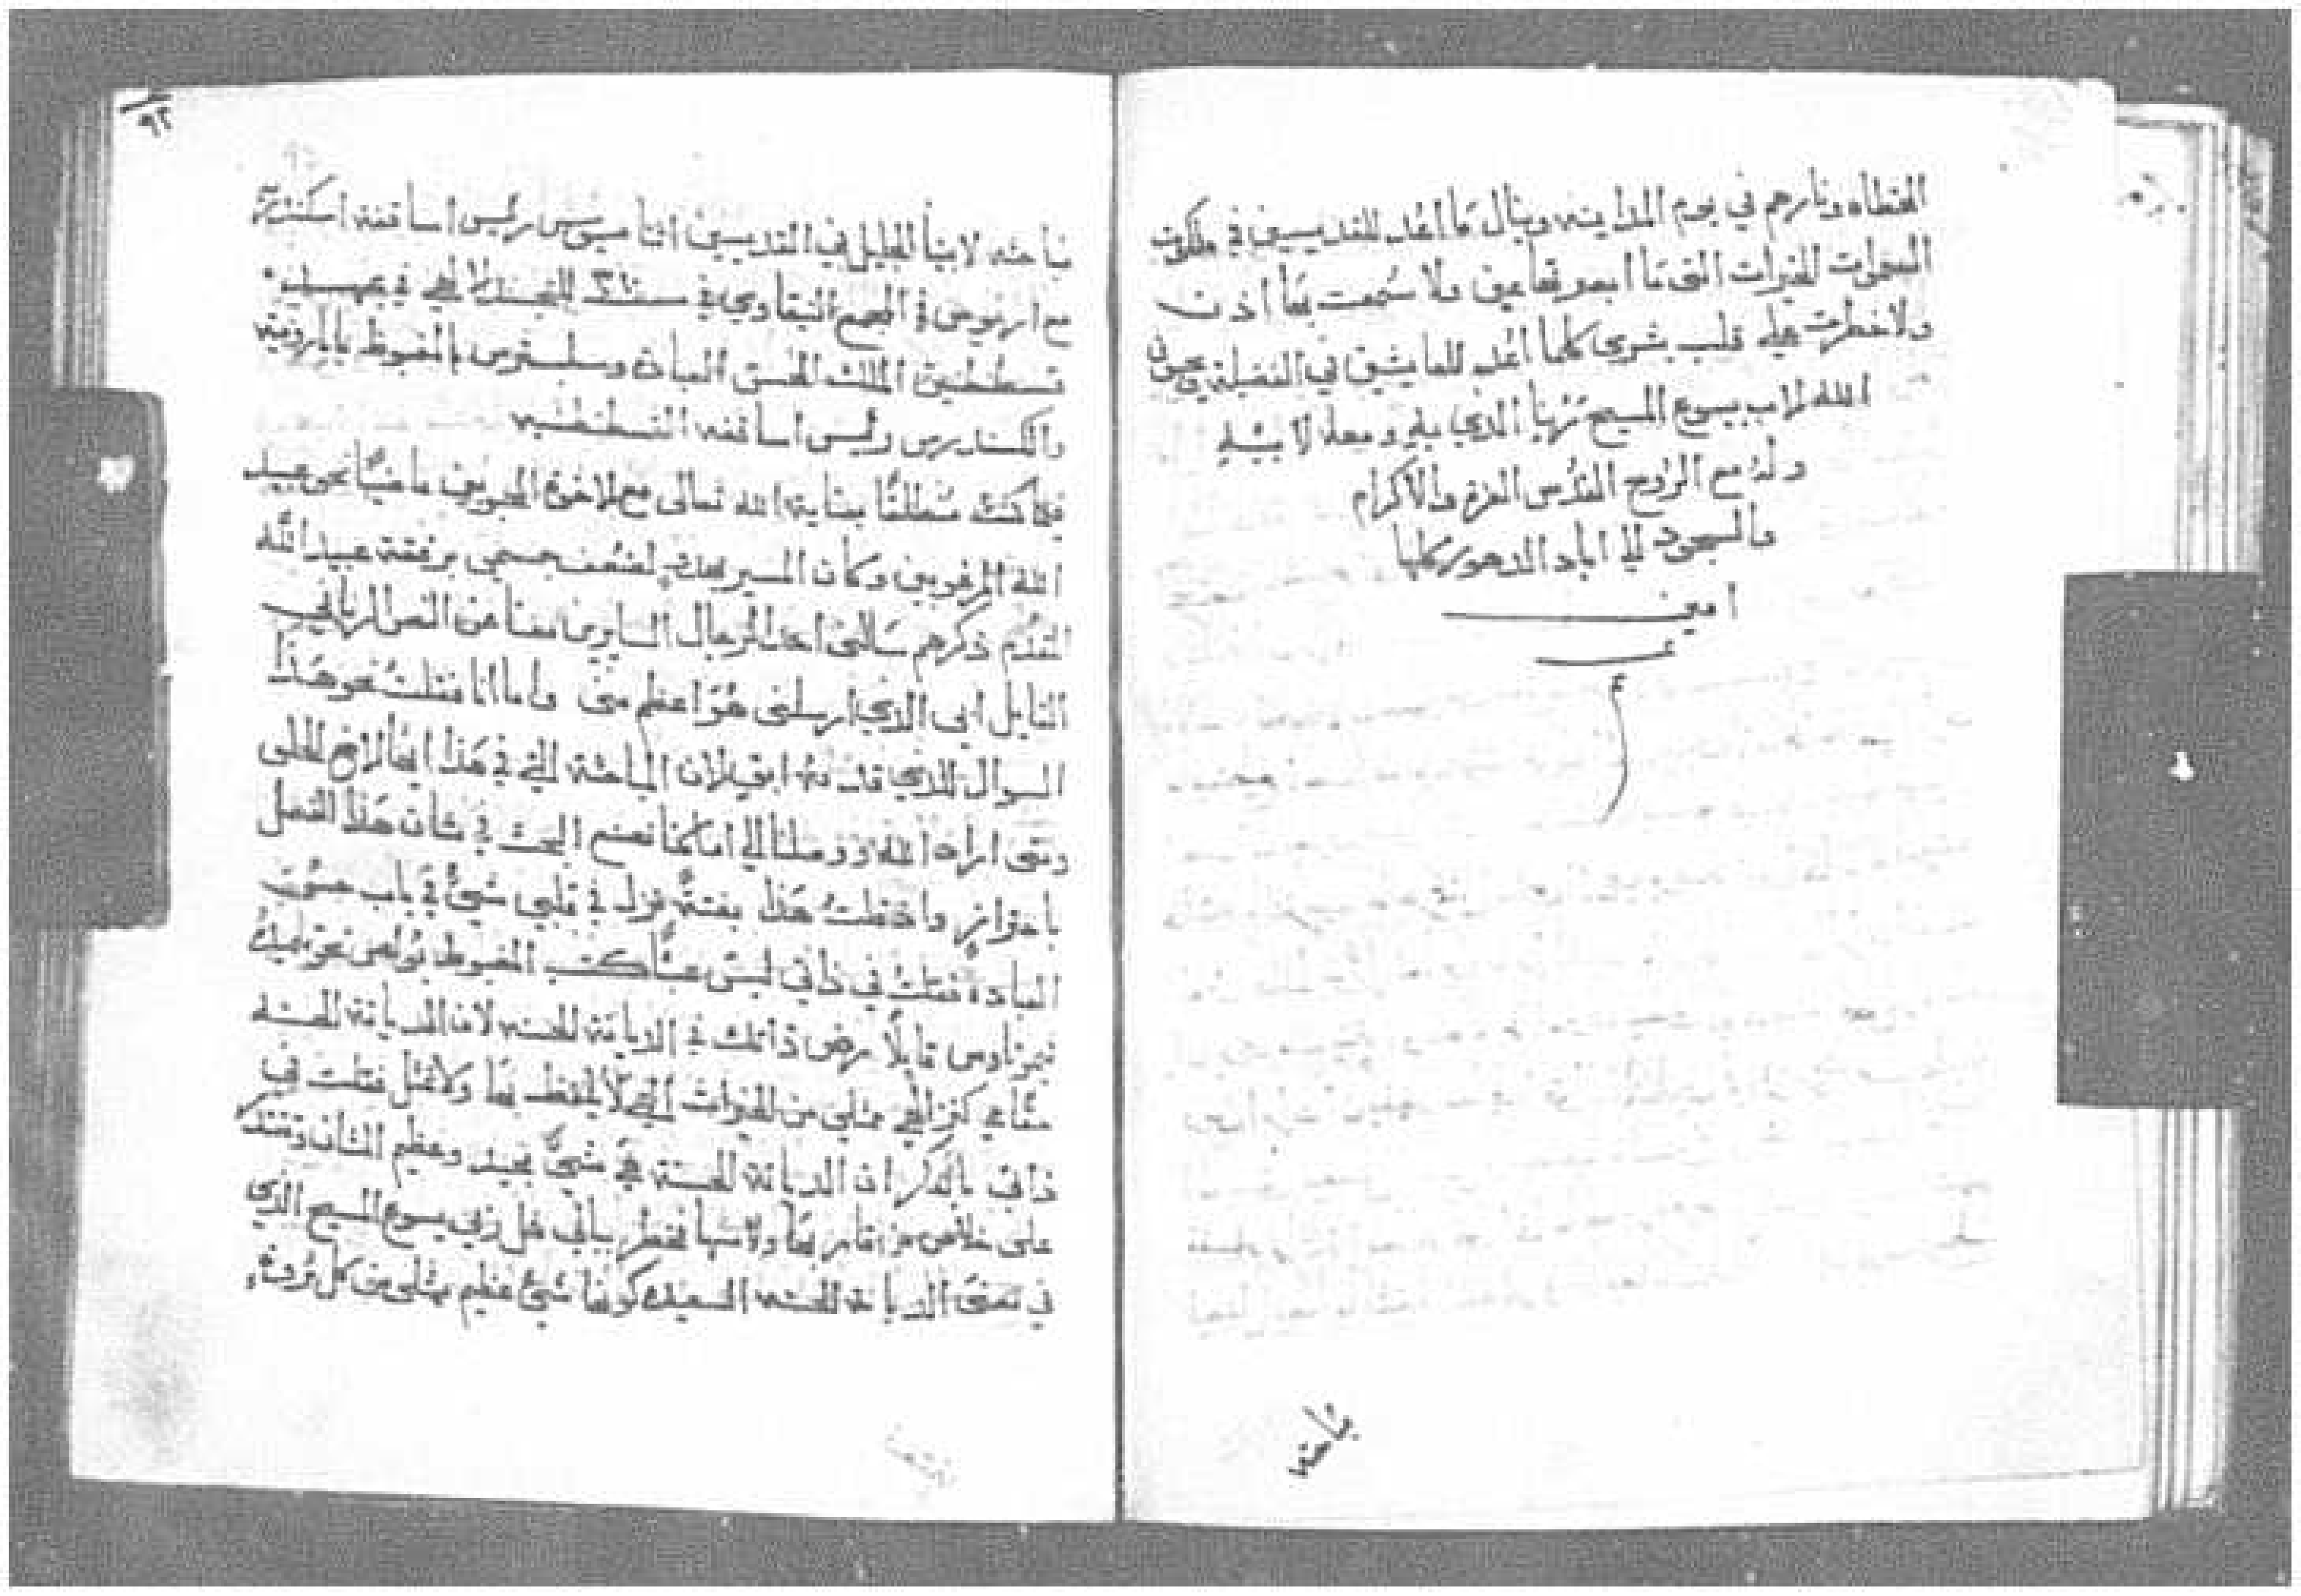 الخطاه ونارهم في يوم المداينه وينال ما اعد للقديسين في ملكوت
السموات الخيرات التي ما ابصرتها عين ولا سمعت بها اذن
ولا خطرت على قلب بشري كلما اعد للعايشين في الفضيلة ويحبون
الله الاب بيسوع المسيح ربنا الذي به ومعه لابيه
وله مع الروح القدس العز والاكرام
والسجود الي اباد الدهور كلها
امين
مباحثه
٩٢
مباحثه لابينا الجليل في القديسين اثناسيوس رييس اساقفة اسكندرية
مع اريوس في المجمع النيقاوي في سنة للتجسد الالهي في عهد
قسطنطين الملك الحسن العباده وسلبسترس المغبوظ بابا روميه
والكسندرس رييس اساقفه القسطنطنيه
فيما كنت منطلقًا بعناية الله تعالى مع الاخوة المحبوبين ماضيًا نحو عبيد
الله المرغوبين وكان المسير لضعف جسمي برفقة عبيد الله
المقدم ذكرهم سالني احد الرجال السايرين معنا عن النص الرباني
القايل ابي الذي ارسلني هو اعظم مني واما انا فقلت نحو هذا
السوال الذي قدمه ابق الان المباحثة التي في هذا ايها الاخ
ومتى اراد الله ووصلنا الي اماكننا نصنع البحث في شان هذا الفصل
باحتراز واذ قلت هذا بغتةً نزل في قلبي شيء في باب حسن
العبادة فقلت في ذاتي ليس عبثًا كتب المغبوط بولص نحو تلميذه
تيموتاوس قايلًا روض ذاتك في الديانة الحسنه لان الديانة الحسنه
حقًا هي كنز الهي ممتلي من الخيرات التي لا يلتفظ بها ولا تمثل فقلت في
ذاتي بالحق ان الديانة الحسنة هي شيء مجيد وعظيم الشان وتقتدر
على خلاص من بها ولاسيما فخطر ببالي قول ربي يسوع المسيح الذي
في معنى الديانة الحسنه السعيده كونها شيء عظيم ممتلي من كل ثروة